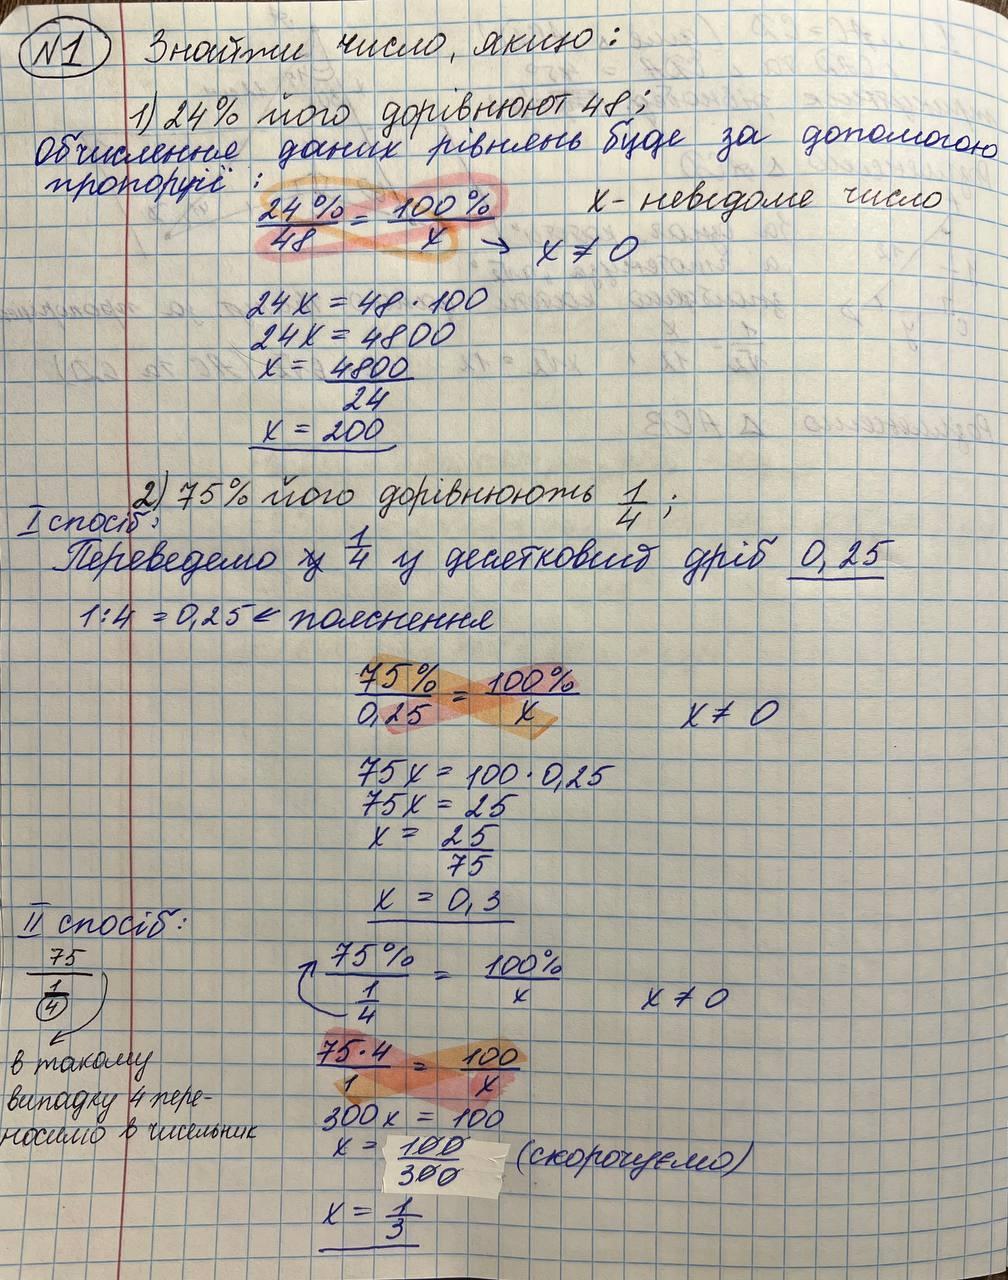 N1 Знайти число, якщо:
1) 24% його дорівнюют 48;
Обчислення даних рівнянь буде за допомогою
пропорції:
24% / 48 = 100% / x → x ≠ 0
x - невідоме число
24x = 48 · 100
24x = 4800
x = 4800 / 24
x = 200
2) 75% його дорівнюють 1/4;
I спосіб:
Переведемо у 1/4 у десятковий дріб 0,25
1:4 = 0,25 ← пояснення
75% / 0,25 = 100% / x x ≠ 0
75x = 100 · 0,25
75x = 25
x = 25 / 75
x = 0,3
II спосіб:
75 / 1/4
в такому
випадку 4 пере-
носимо в чисельник
75% / 1/4 = 100% / x x ≠ 0
75·4 / 1 = 100 / x
300x = 100
x = 100 / 300 (скорочуємо)
x = 1/3